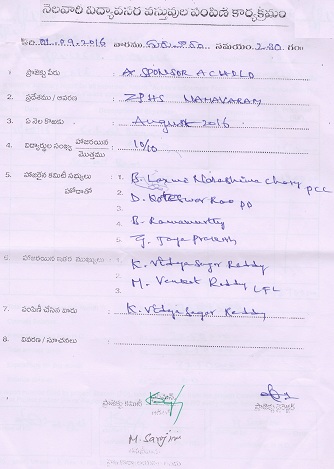 నెలవారి విద్యావసర వస్తువుల పంపిణి కార్యక్రమం
తేది. 01.09.2016 వారము గురువారం సమయం 2-30 గం
1 ప్రాజెక్టు పేరు A SPONSOR A CHILD
2. ప్రదేశము / ఆవరణ ZPHS NAMAVARAM
3. ఏ నెల కొరకు August 2016
4. విద్యార్థుల సంఖ్య హాజరయిన / మొత్తము 10/10
5. హాజరైన కమిటీ సభ్యులు 1. B. Laxma Narashima Chary PCC
హోదాతో 2. D. Koteswar Rao PD
3. B. Ramamurthy
4. G. Jaya Prakash
6. హాజరయిన ఇతర ముఖ్యులు 1. K. Vidya Sagar Reddy
2. M. Venkat Reddy LFL
3.
7. పంపిణి చేసిన వారు K. Vidya Sagar Reddy
8. వివరణ / సూచనలు
ప్రాజెక్టు కమిటీ
M. Sarojini